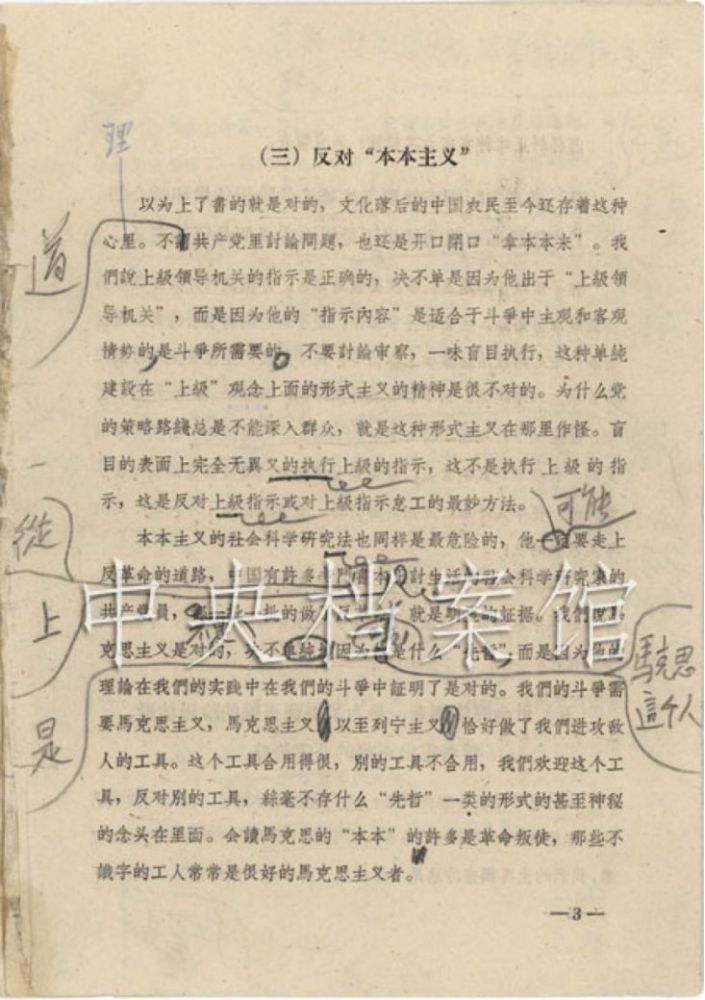 理
（三）反对“本本主义”
以为上了書的就是对的，文化落后的中国农民至今还存着这种
道
心里。不 共产党里討論問題，也还是开口閉口“拿本本来”。我
們說上級領导机关的指示是正确的，决不单是因为他出于“上級領
导机关”，而是因为他的“指示內容”是适合于斗爭中主观和客观
情势的是斗爭所需要的。不要討論审察，一味盲目执行，这种单純
建設在“上級”观念上面的形式主义的精神是很不对的。为什么党
的策略路綫总是不能深入群众，就是这种形式主义在那里作怪。盲
目的表面上完全无異义的执行上級的指示，这不是执行上級的指
示，这是反对上級指示或对上級指示怠工的最妙方法。
可能
從
本本主义的社会科学研究法也同样是最危险的，他 要走上
反革命的道路，中国有許多 本 討生活 社会科学研究 的
上
共产党員， 批的做 就是明 的証据。我們說馬
中央档案馆
克思主义是对的，决不单純 因为 是什么“先哲”，而是因为他的
馬克思
這个人
理論在我們的实践中在我們的斗爭中証明了是对的。我們的斗爭需
要馬克思主义，馬克思主义 以至列宁主义 恰好做了我們进攻敌
是
人的工具。这个工具合用得很，別的工具不合用，我們欢迎这个工
具，反对別的工具，絲毫不存什么“先哲”一类的形式的甚至神秘
的念头在里面。会讀馬克思的“本本”的許多是革命叛徒，那些不
識字的工人常常是很好的馬克思主义者。
—3—